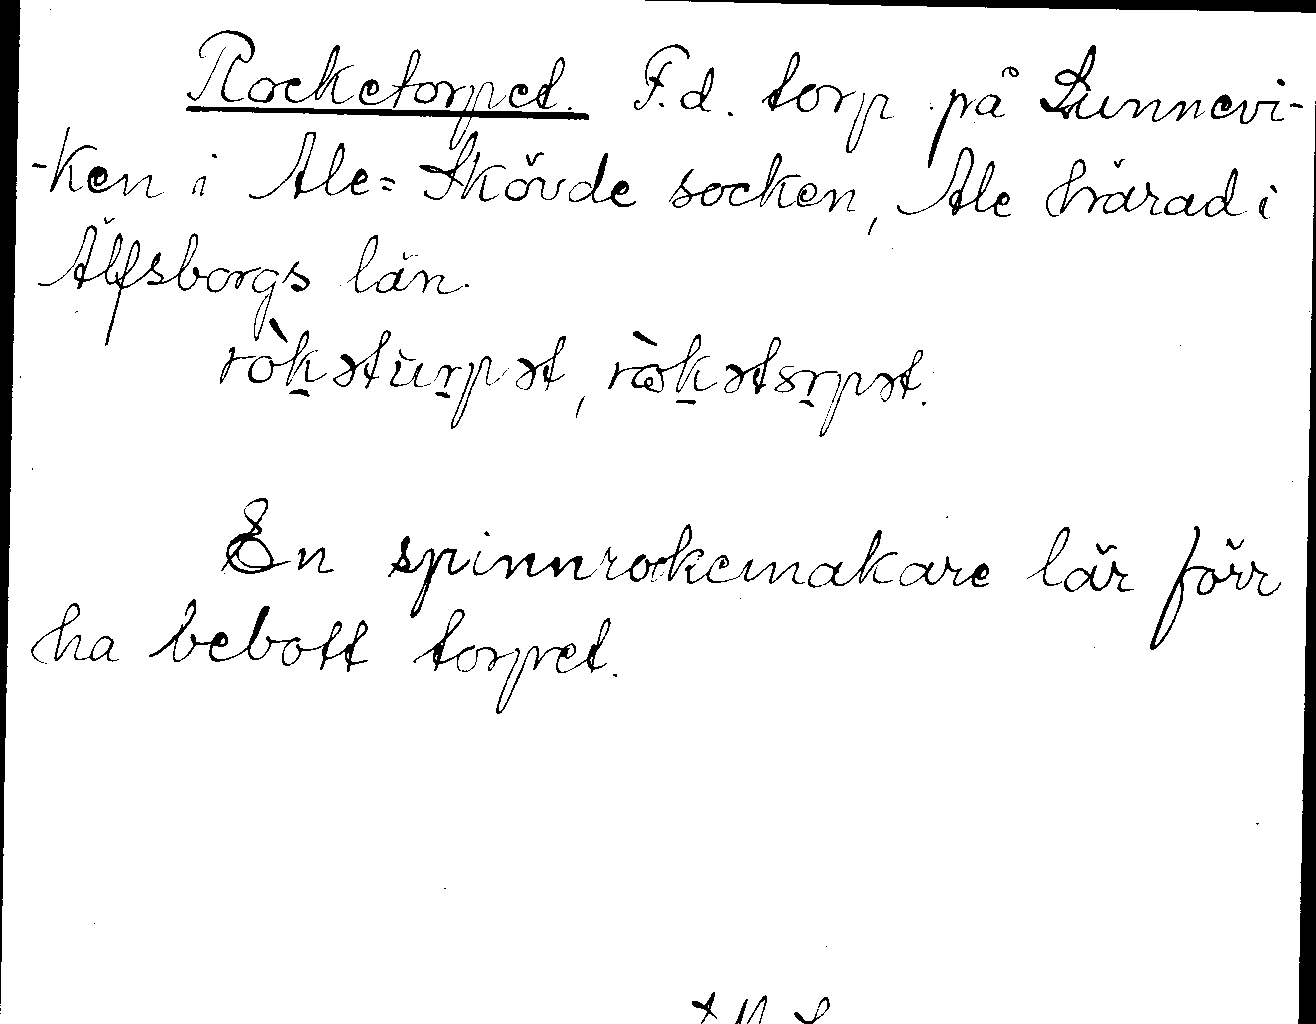 Rocketorpet. F.d. torp på Sunnevi-
-ken i Ale=Skövde socken, Ale härad i
Älfsborgs län.
ròk̠ətùr̠pət, ròk̠ət
En spinnrockemakare lär förr
ha bebott torpet.